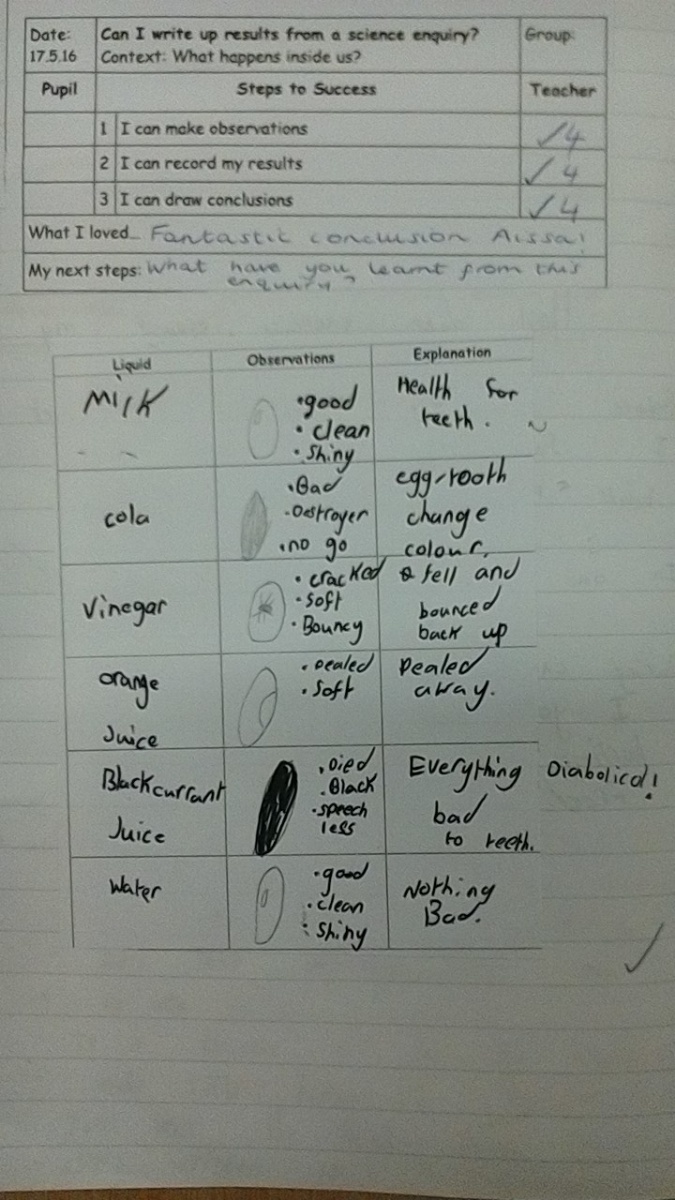 Date: Can I write up results from a science enquiry? Group:
17.5.16 Context: What happens inside us?
Pupil Steps to Success Teacher
1 I can make observations ✓4
2 I can record my results ✓4
3 I can draw conclusions ✓4
What I loved... Fantastic conclusion Aissa!
My next steps: What have you learnt from this
enquiry?
Liquid Observations Explanation
Milk
•good
• clean
• Shiny
Health for
teeth.
cola
•Bad
•Destroyer
•no go
egg/tooth
change
colour.
Vinegar
• cracked
• Soft
• Bouncy
fell and
bounced
back up
orange
Juice
• pealed
• Soft
Pealed
away.
Blackcurrant
Juice
•Died
•Black
•speech
less
Everything Diabolical!
bad
to teeth.
Water
•good
•clean
• Shiny
Nothing
Bad.